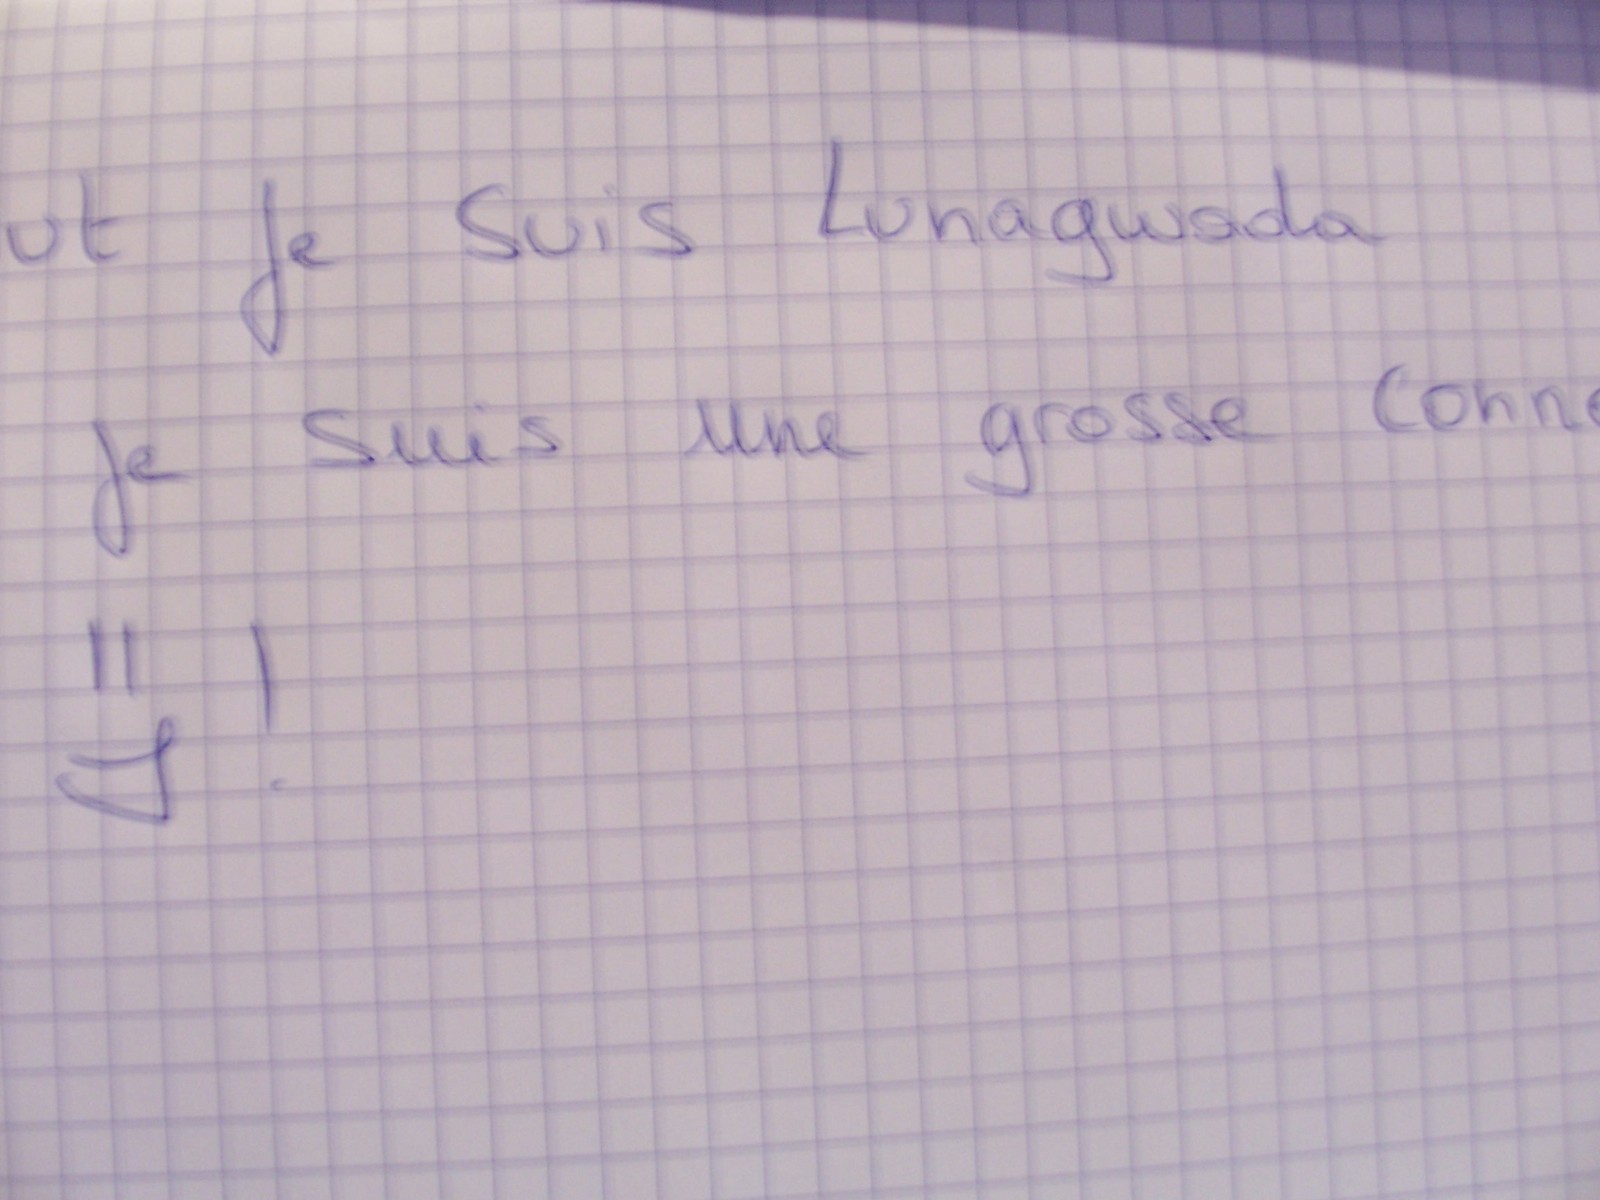 ut je suis Lunagwada
je suis une grosse conne
!